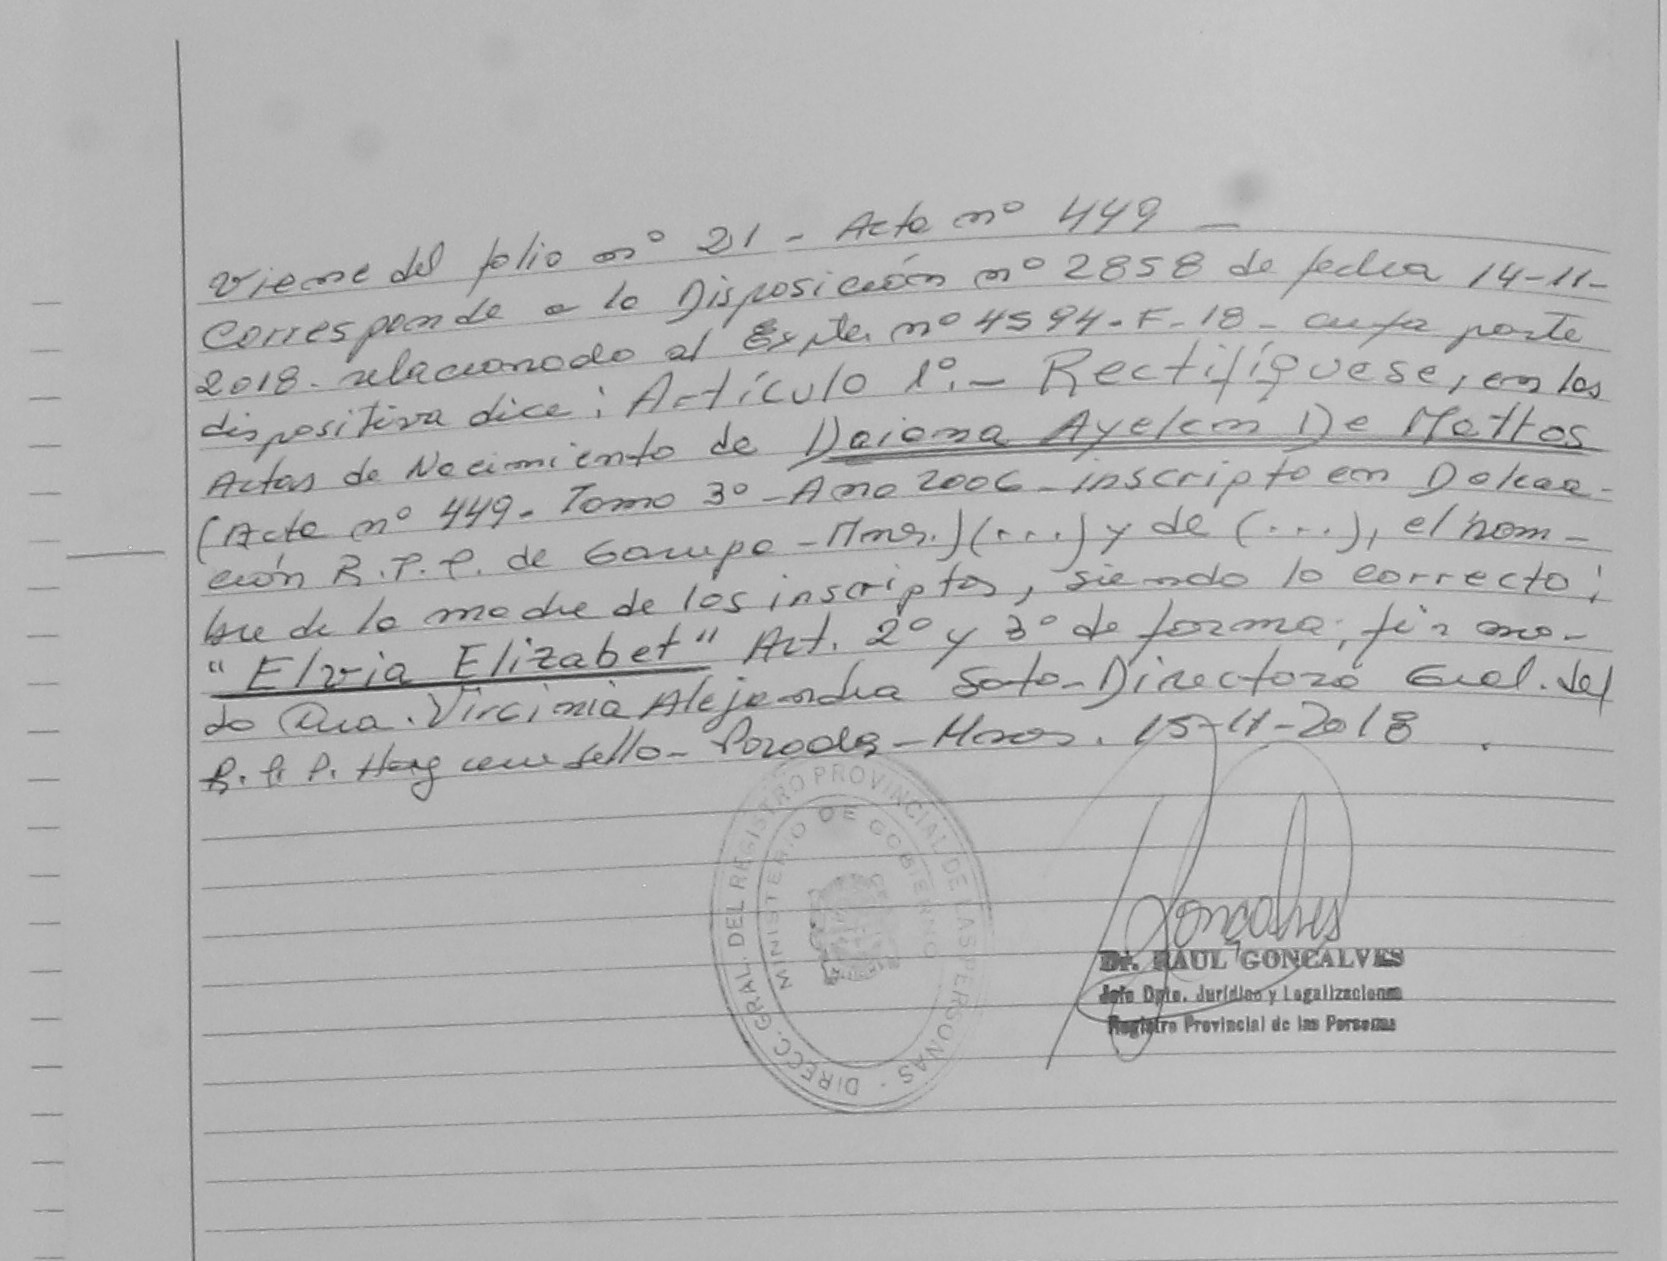 Viene del folio nº 21 - Acta nº 449 -
Corresponde a la Disposición nº 2858 de fecha 14-11-
2018. relacionado al Expte. nº 4594-F-18- cuya parte
dispositiva dice: Artículo 1º.- Rectifíquese, en las
Actas de Nacimiento de Daiana Ayelen De Mattos
(Acta nº 449. Tomo 3º - Año 2006 - inscripta en Delega-
ción R.P.P. de Garupa - Mnes.) (...) y de (...), el nom-
bre de la madre de los inscriptos, siendo lo correcto:
"Elvia Elizabet" Art. 2º y 3º de forma; firma-
do Dra. Virginia Alejandra Soto - Directora Gral. del
R.P.P. Hay un sello - Posadas - Mnes. 15-11-2018.
DIRECC. GRAL. DEL REGISTRO PROVINCIAL DE LAS PERSONAS -
MINISTERIO DE GOBIERNO
Gonçalves
Dr. RAUL GONCALVES
Jefe Dpto. Jurídico y Legalizaciones
Registro Provincial de las Personas